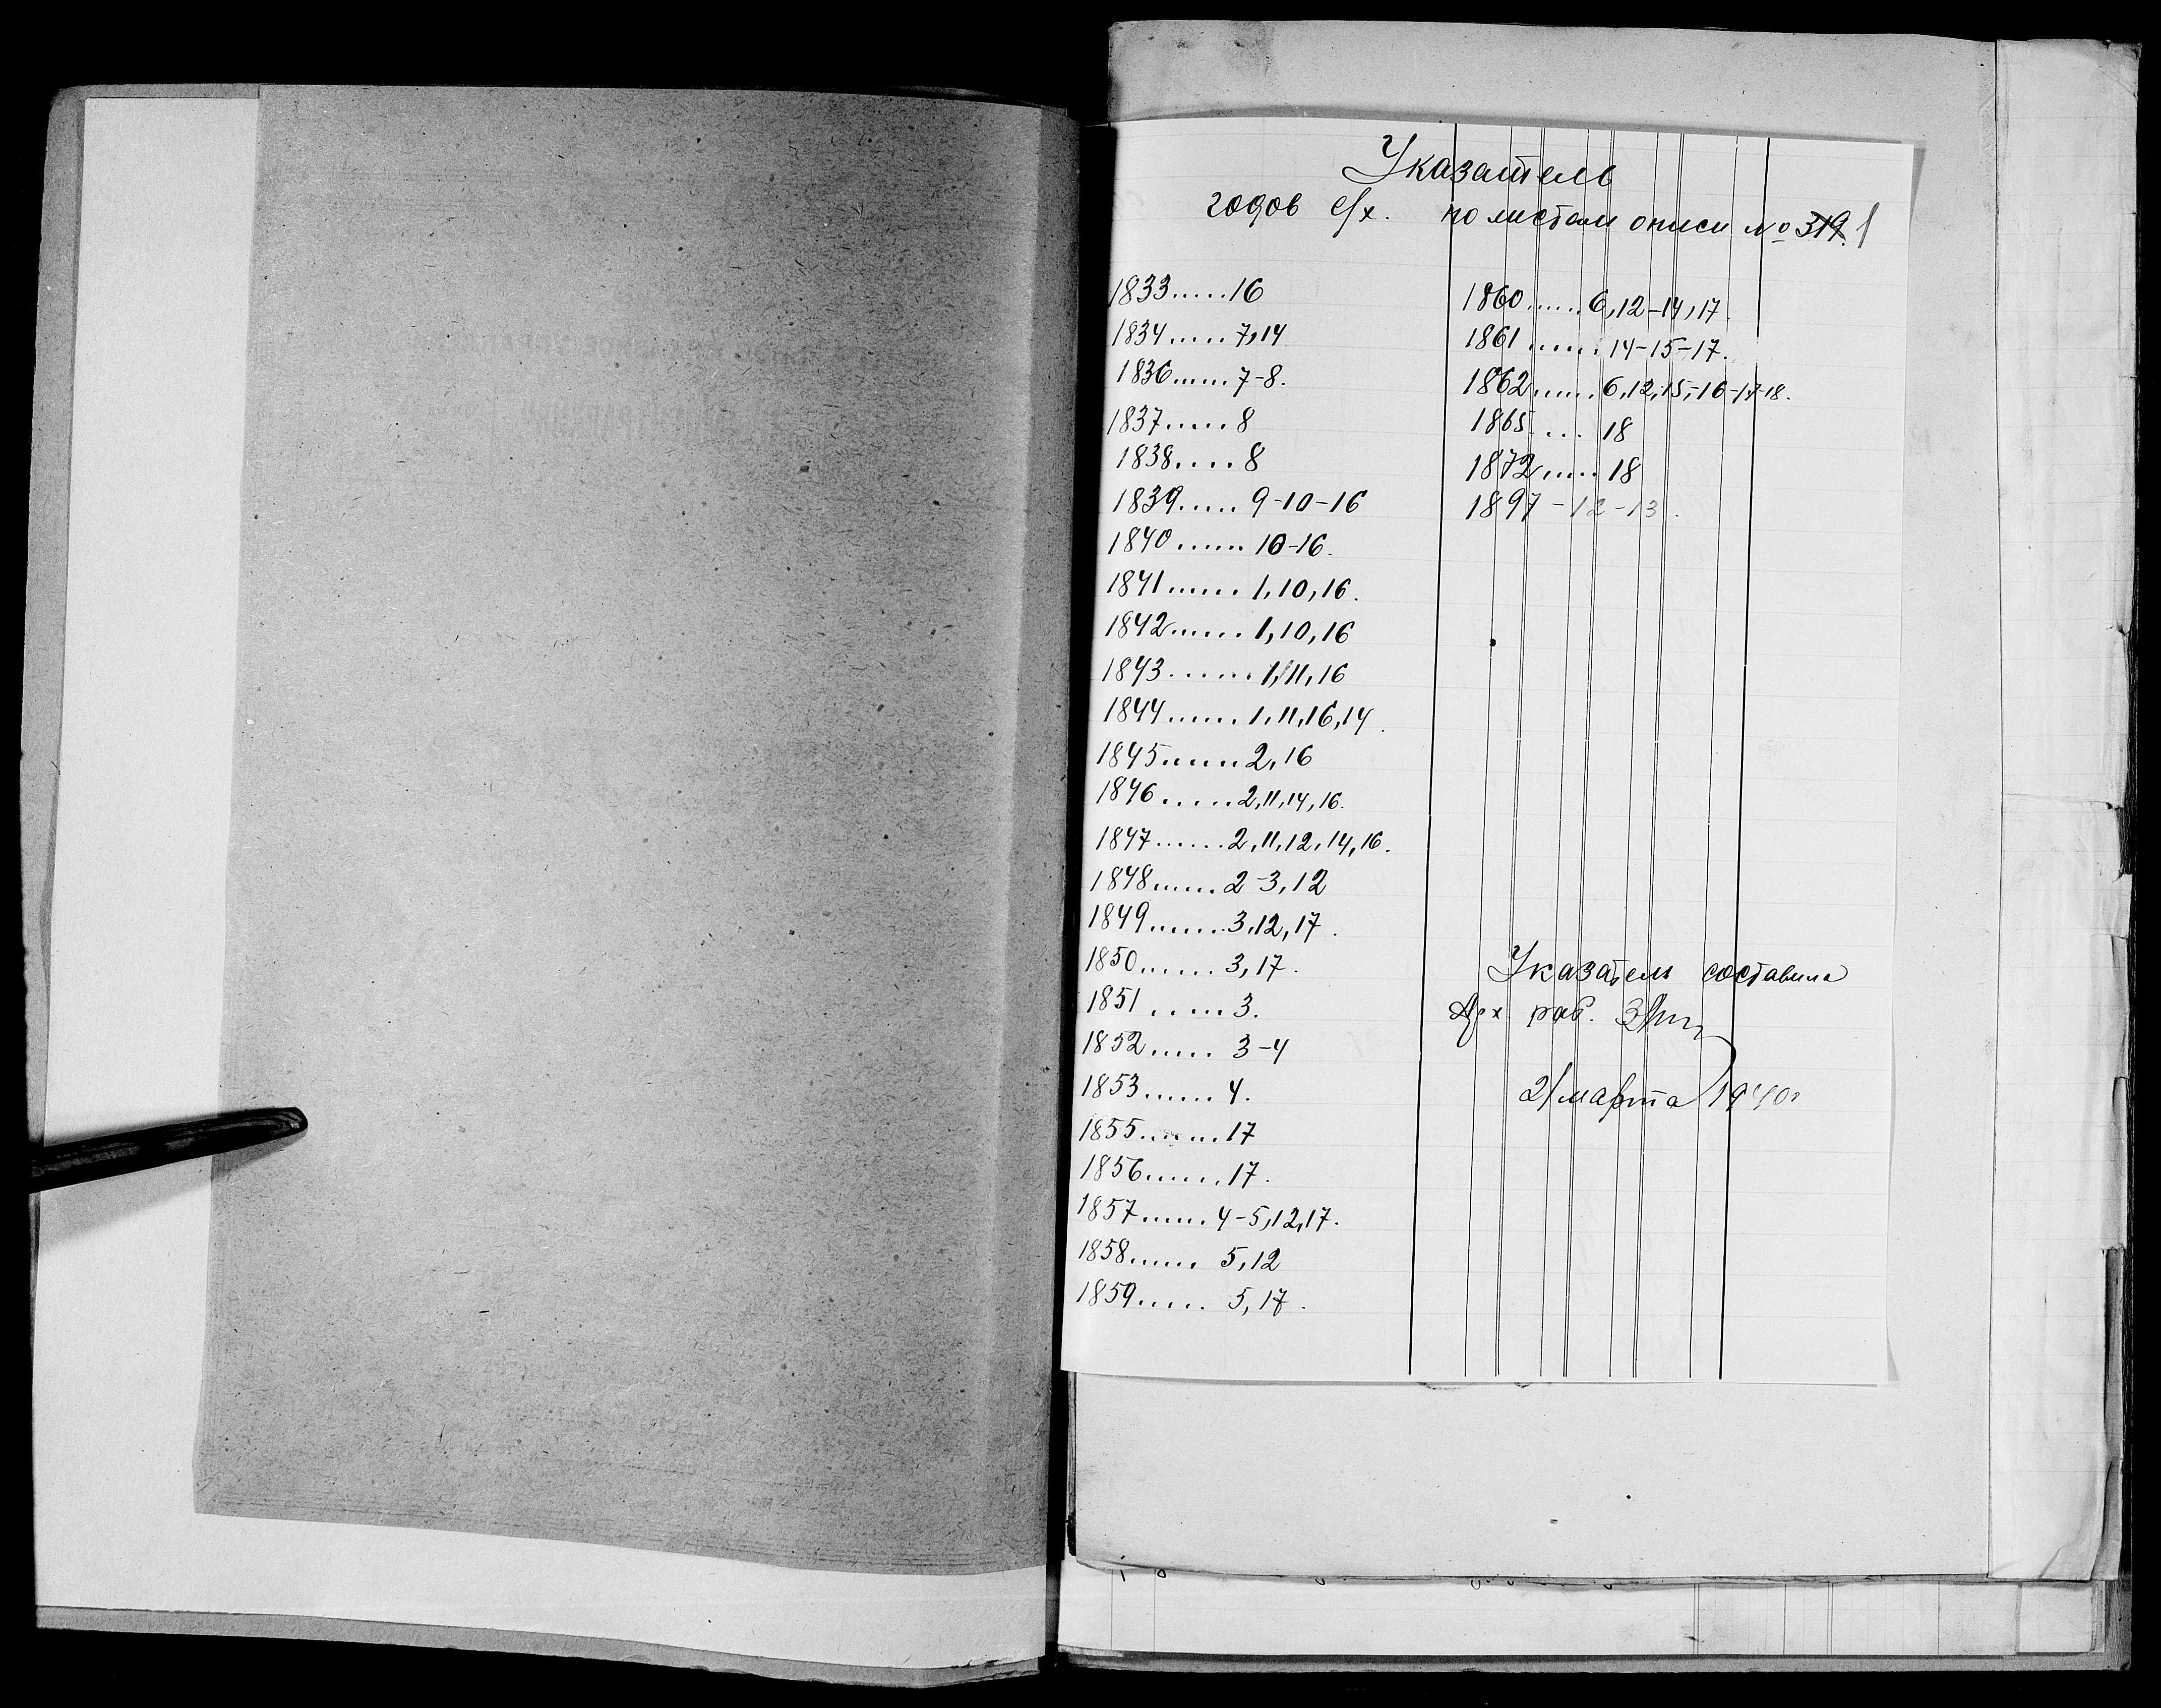 Указатель
годов с/х. по листам описи № 319. 1
1833.....16
1834.....7,14
1836.....7-8.
1837.....8
1838....8
1839.....9-10-16
1840......10-16.
1841......1,10,16.
1842......1,10,16
1843......1,11,16
1844......1,11,16,14.
1845.....2,16
1846.....2,11,14,16.
1847......2,11,12,14,16.
1848.....2-3,12
1849......3,12,17.
1850......3,17.
1851.....3.
1852.....3-4
1853......4.
1855......17
1856......17.
1857.....4-5,12,17.
1858.....5,12
1859.....5,17.
1860.....6,12-14,17.
1861.....14-15-17.
1862.....6,12,15,-16-17-18.
1865....18
1872.....18
1897-12-13.
Указатель составила
Арх. раб.
21 марта 1940г